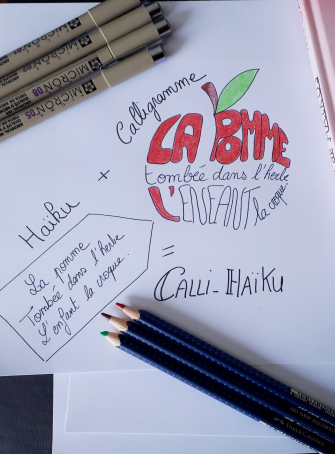 MICRON 08
MICRON 08
MICRON 05
Calligramme
LA POMME
tombée dans l'herbe
L'ENFANT la croque
+
Haïku
La pomme
Tombée dans l'herbe
L'enfant la croque.
=
CALLI-HAÏKU